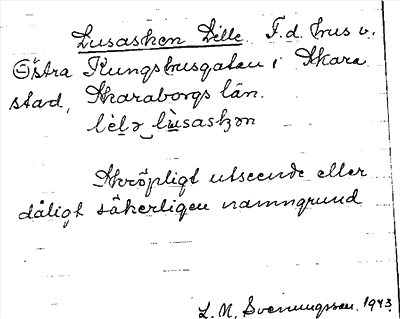 Lusasken Lille. F.d. hus v.
Östra Kungshusgatan i Skara
stad, Skaraborgs län.
lìlə lùsaskən
Skröpligt utseende eller
dåligt säkerligen namngrund
L. N. Svenungsson. 1943.